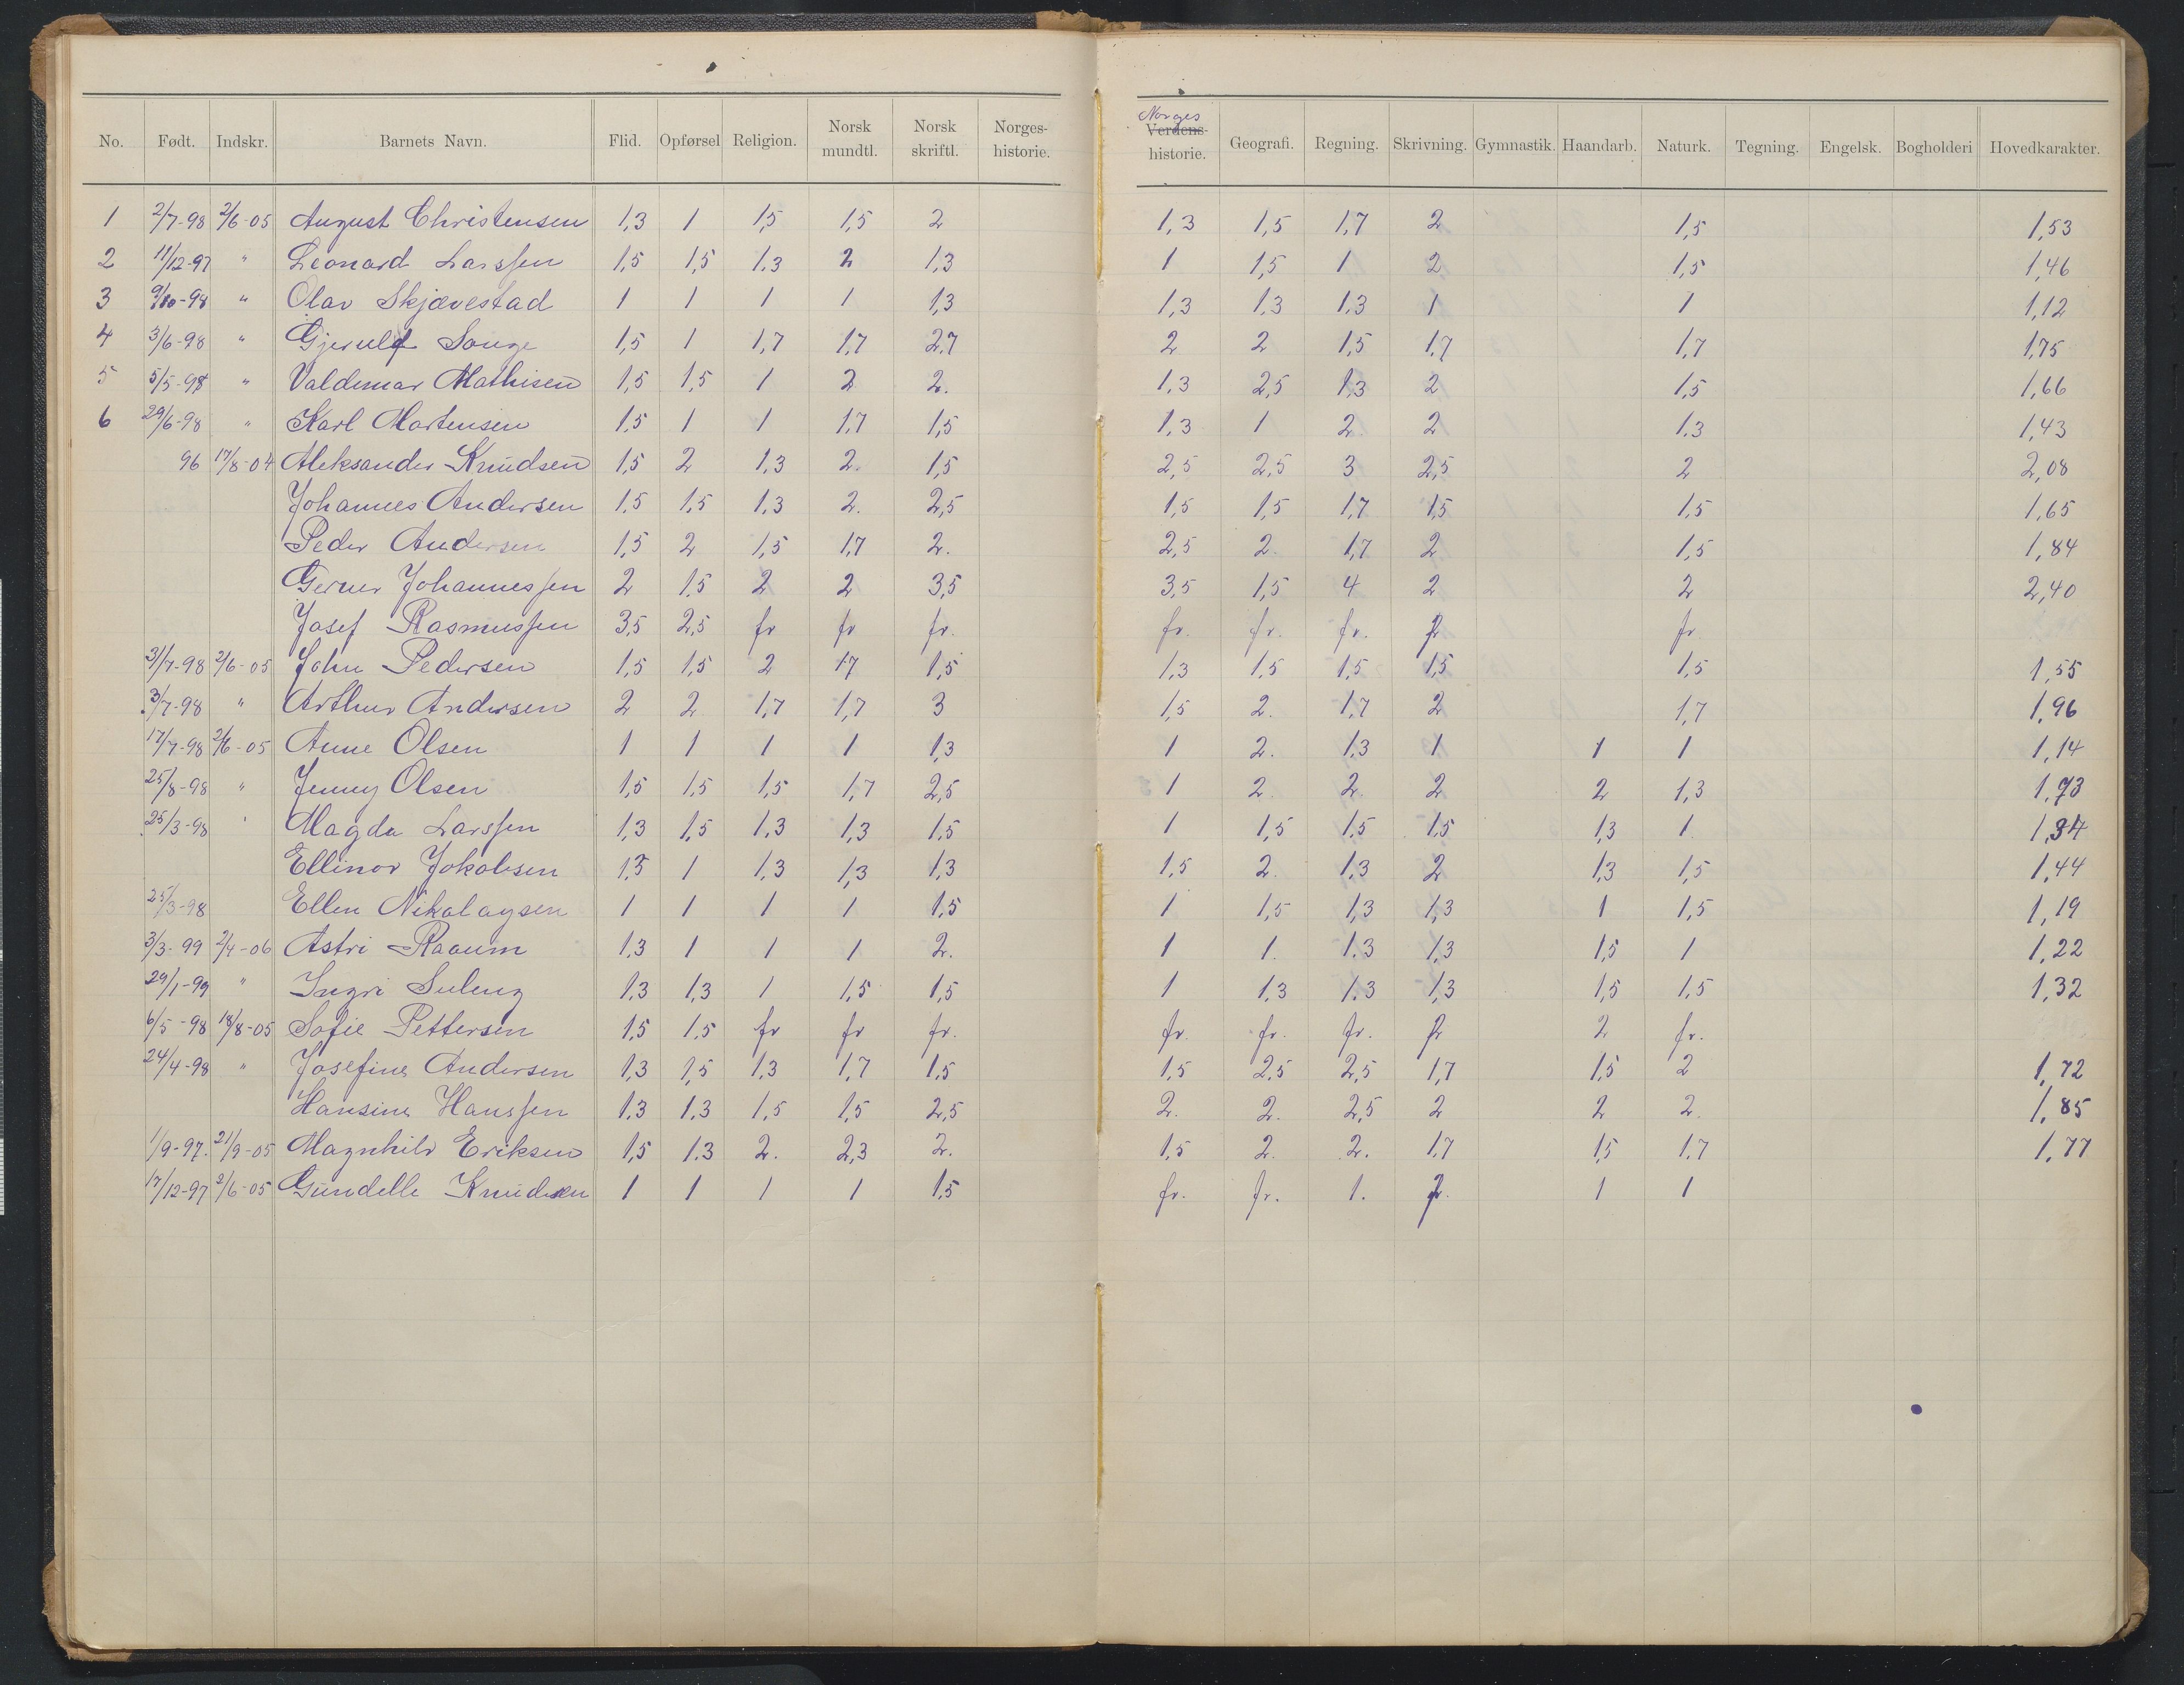 No. Født. Indskr. Barnets Navn. Flid. Opførsel Religion. Norsk mundtl. Norsk skriftl. Norges-historie. Norges Verdens-historie. Geografi. Regning. Skrivning. Gymnastik. Haandarb. Naturk. Tegning. Engelsk. Bogholderi Hovedkarakter.
1 2/7-98 2/6-05 August Christensen 1,3 1 1,5 1,5 2 1,3 1,5 1,7 2 1,5 1,53
2 11/12-97 " Leonard Larssen 1,5 1,5 1,3 2 1,3 1 1,5 1 2 1,5 1,46
3 9/10-98 " Olav Skjævestad 1 1 1 1 1,3 1,3 1,3 1,3 1 1 1,12
4 3/6-98 " Gjerulf Songe 1,5 1 1,7 1,7 2,7 2 2 1,5 1,7 1,7 1,75
5 5/5-98 " Valdemar Mathisen 1,5 1,5 1 2 2. 1,3 2,5 1,3 2 1,5 1,66
6 29/6-98 " Karl Martensen 1,5 1 1 1,7 1,5 1,3 1 2 2 1,3 1,43
96 17/8-04 Aleksander Knudsen 1,5 2 1,3 2. 1,5 2,5 2,5 3 2,5 2 2,08
Johannes Andersen 1,5 1,5 1,3 2. 2,5 1,5 1,5 1,7 1,5 1,5 1,65
Peder Andersen 1,5 2 1,5 1,7 2. 2,5 2. 1,7 2 1,5 1,84
Gerner Johannessen 2 1,5 2 2 3,5 3,5 1,5 4 2 2 2,40
Josef Rasmussen 3,5 2,5 fr fr fr. fr. fr. fr. fr.
31/7-98 2/6-05 John Pedersen 1,5 1,5 2 1,7 1,5 1,3 1,5 1,5 1,5 1,5 1,55
3/7-98 " Arthur Andersen 2 2 1,7 1,7 3 1,5 2. 1,7 2 1,7 1,96
17/7-98 2/6-05 Anne Olsen 1 1 1 1 1,3 1 2. 1,3 1 1 1 1,14
25/8-98 " Jenny Olsen 1,5 1,5 1,5 1,7 2,5 1 2 2 2 2 1,3 1,73
25/3-98 " Magda Larssen 1,3 1,5 1,3 1,3 1,5 1 1,5 1,5 1,5 1,3 1. 1,34
Ellinor Jakobsen 1,5 1 1,3 1,3 1,3 1,5 2. 1,3 2 1,3 1,5 1,44
25/3-98 Ellen Nikolaysen 1 1 1 1 1,5 1 1,5 1,3 1,3 1 1,5 1,19
3/3-99 2/4-06 Astri Raaum 1,3 1 1 1 2. 1 1. 1,3 1,3 1,5 1 1,22
29/1-99 " Ingri Suleng 1,3 1,3 1 1,5 1,5 1 1,3 1,3 1,3 1,5 1,5 1,32
6/5-98 18/8-05 Sofie Pettersen 1,5 1,5 fr fr fr. fr. fr. fr. 2 fr.
24/4-98 " Josefine Andersen 1,3 1,5 1,3 1,7 1,5 1,5 2,5 2,5 1,7 1,5 2 1,72
Hansine Hanssen 1,3 1,3 1,5 1,5 2,5 2. 2. 2,5 2 2 2. 1,85
1/9-97. 21/9-05 Magnhild Eriksen 1,5 1,3 2. 2,3 2. 1,5 2. 2. 1,7 1,5 1,7 1,77
17/12-97 2/6-05 Gundelle Knudsen 1 1 1 1 1,5 fr. fr. 1. 1 1